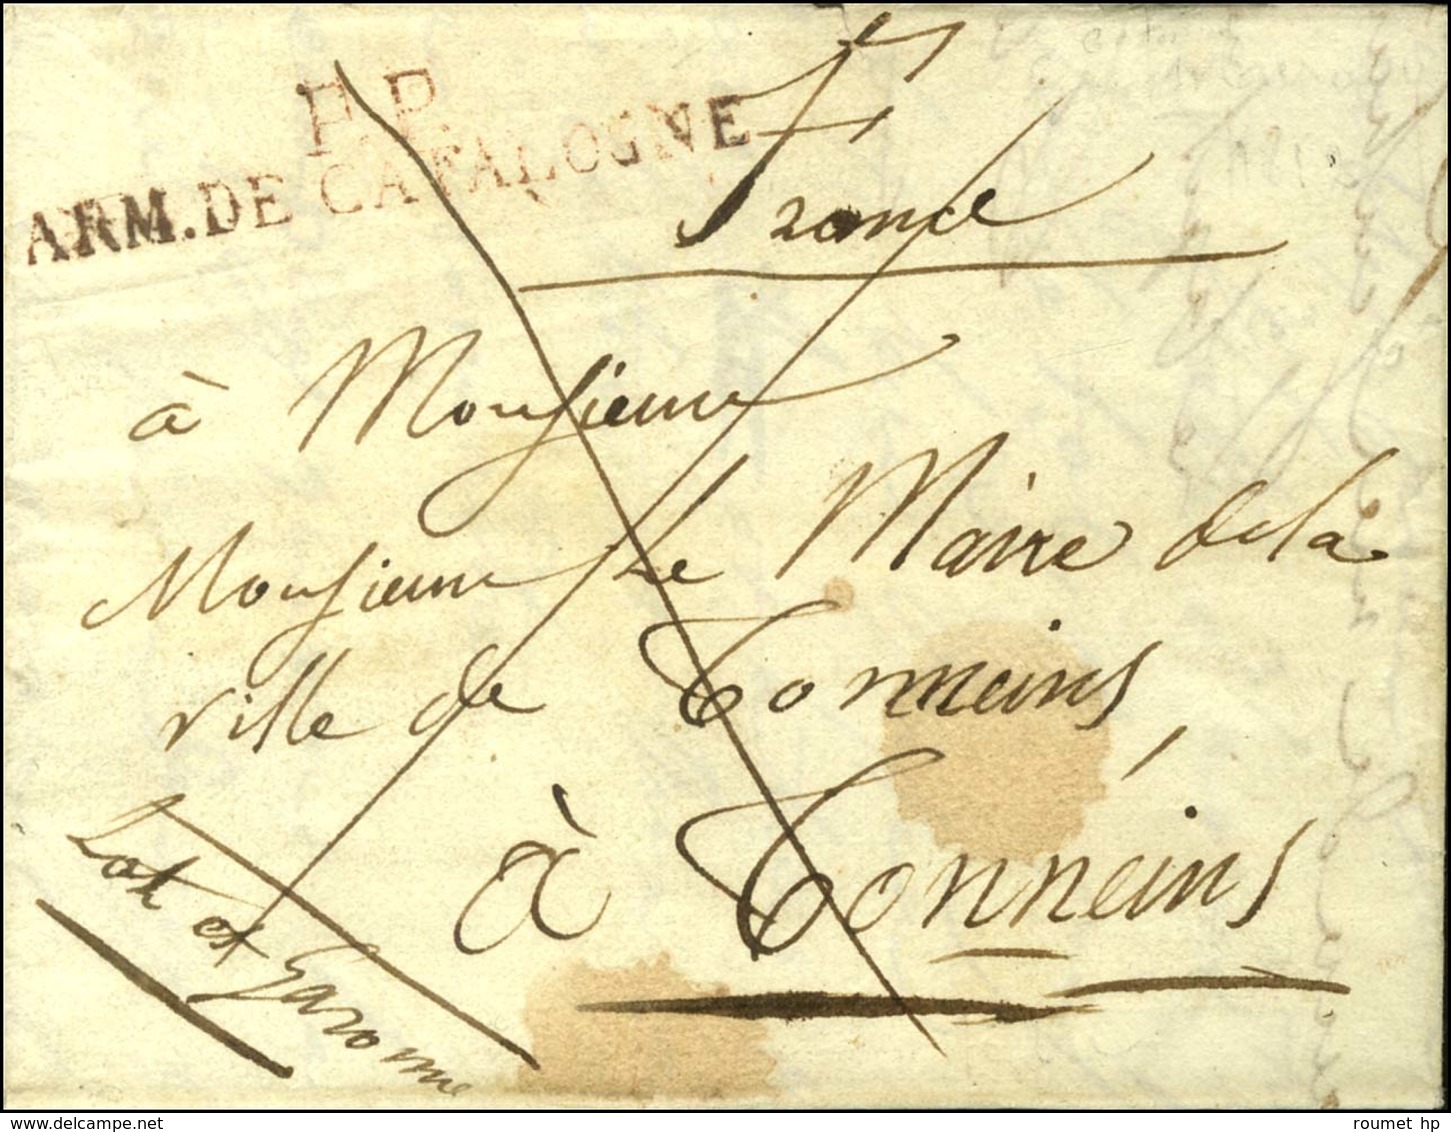 P.P.
ARM. DE CATALOGNE
France
à Monsieur
Monsieur Le Maire de la
ville de Tonneins,
à Tonneins
Lot et Garonne
1812
roumet hp